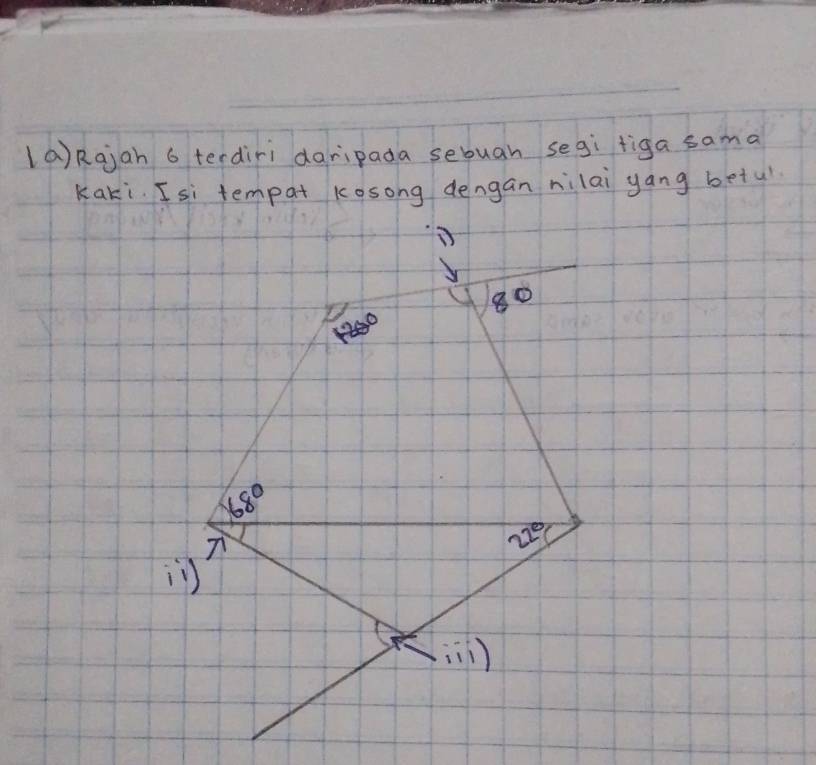 1a) Rajah 6 terdiri daripada sebuah segi tiga sama
kaki. Isi tempat kosong dengan nilai yang betul.
i)
80
68°
22°
ii)
iii)